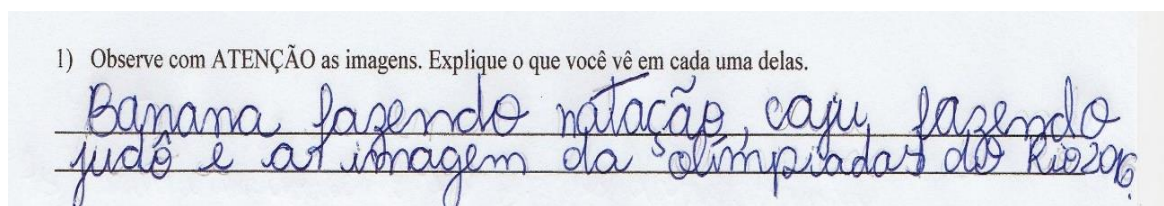 1) Observe com ATENÇÃO as imagens. Explique o que você vê em cada uma delas.
Banana fazendo natação, caju, fazendo
judô e as imagem das olimpiadas do Rio2016.